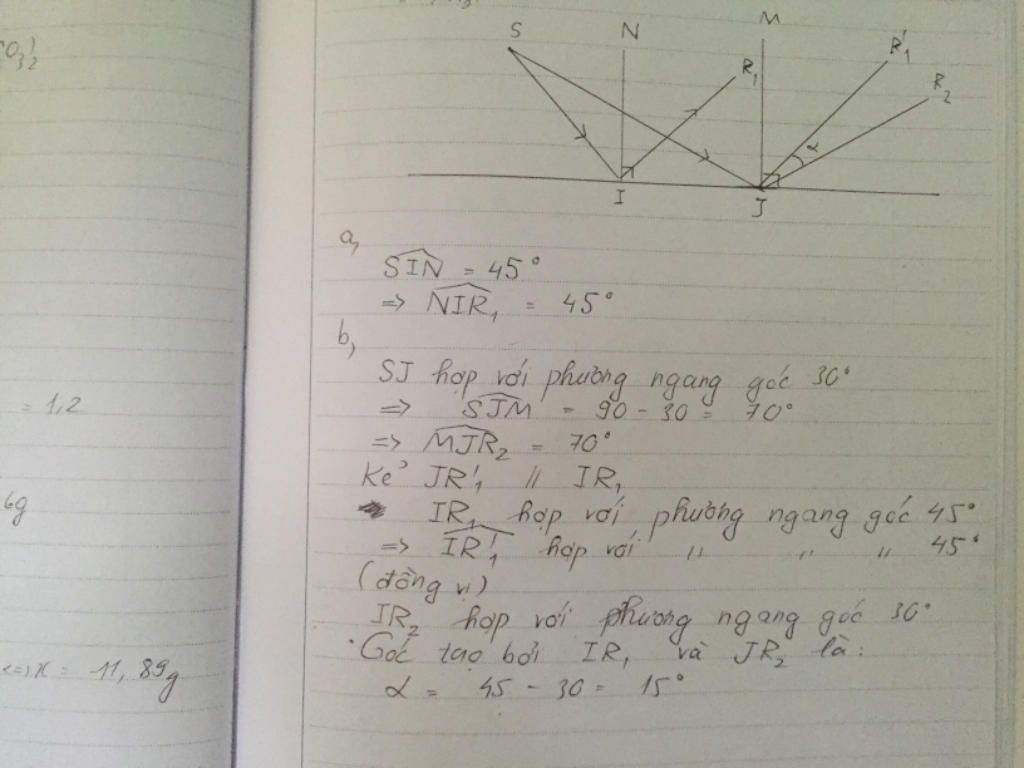 CO3)2
= 1,2
6g
<=> x = 11,89g
S N M R'1
R1 R2
α
I J
a,
SIN = 45°
=> NIR1 = 45°
b,
SJ hợp với phương ngang góc 30°
=> SJM = 90 - 30 = 70°
=> MJR2 = 70°
Kẻ JR'1 // IR1
IR1 hợp với phương ngang góc 45°
=> IR'1 hợp với " " " 45°
(đồng vị)
JR2 hợp với phương ngang góc 30°
· Góc tạo bởi IR1 và JR2 là:
α = 45 - 30 = 15°